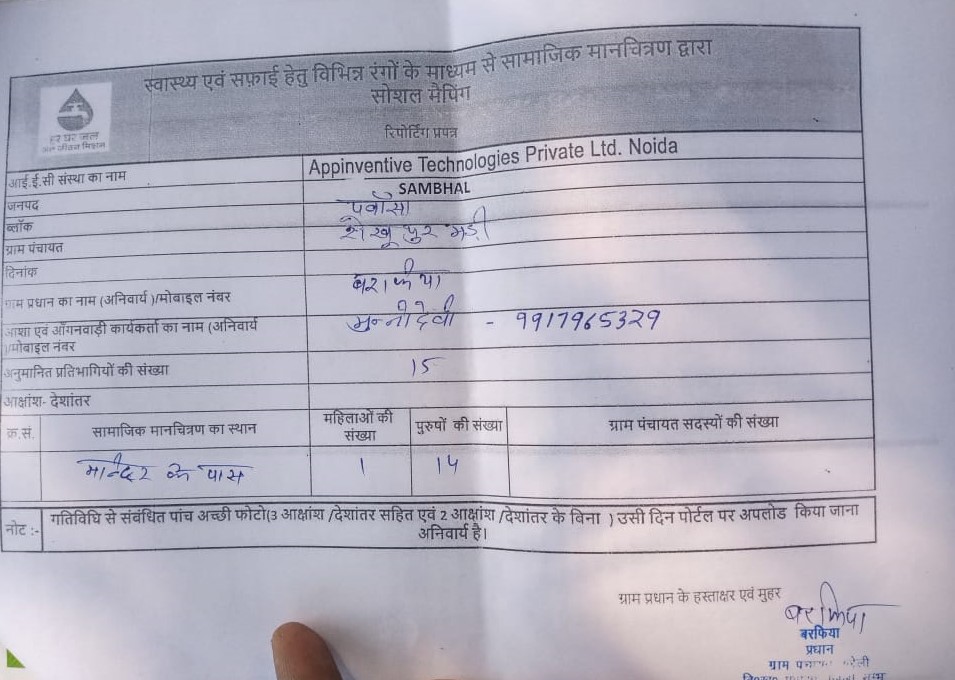 स्वास्थ्य एवं सफ़ाई हेतु विभिन्न रंगों के माध्यम से सामाजिक मानचित्रण द्वारा
सोशल मैपिंग
रिपोर्टिंग प्रपत्र
हर घर जल
जल जीवन मिशन
आई.ई.सी संस्था का नाम Appinventive Technologies Private Ltd. Noida
जनपद SAMBHAL
ब्लॉक पवांसा
ग्राम पंचायत शेखूपुर
दिनांक
ग्राम प्रधान का नाम (अनिवार्य )/मोबाइल नंबर
आशा एवं आँगनवाड़ी कार्यकर्ता का नाम (अनिवार्य मुन्नी देवी - 9917965329
)/मोबाइल नंबर
अनुमानित प्रतिभागियों की संख्या 15
आक्षांश- देशांतर
क्र.सं. सामाजिक मानचित्रण का स्थान महिलाओं की संख्या पुरुषों की संख्या ग्राम पंचायत सदस्यों की संख्या
मन्दिर के पास 1 14
नोट :- गतिविधि से संबंधित पांच अच्छी फोटो(3 आक्षांश /देशांतर सहित एवं 2 आक्षांश /देशांतर के बिना ) उसी दिन पोर्टल पर अपलोड किया जाना
अनिवार्य है।
ग्राम प्रधान के हस्ताक्षर एवं मुहर
बरफिया
प्रधान
ग्राम